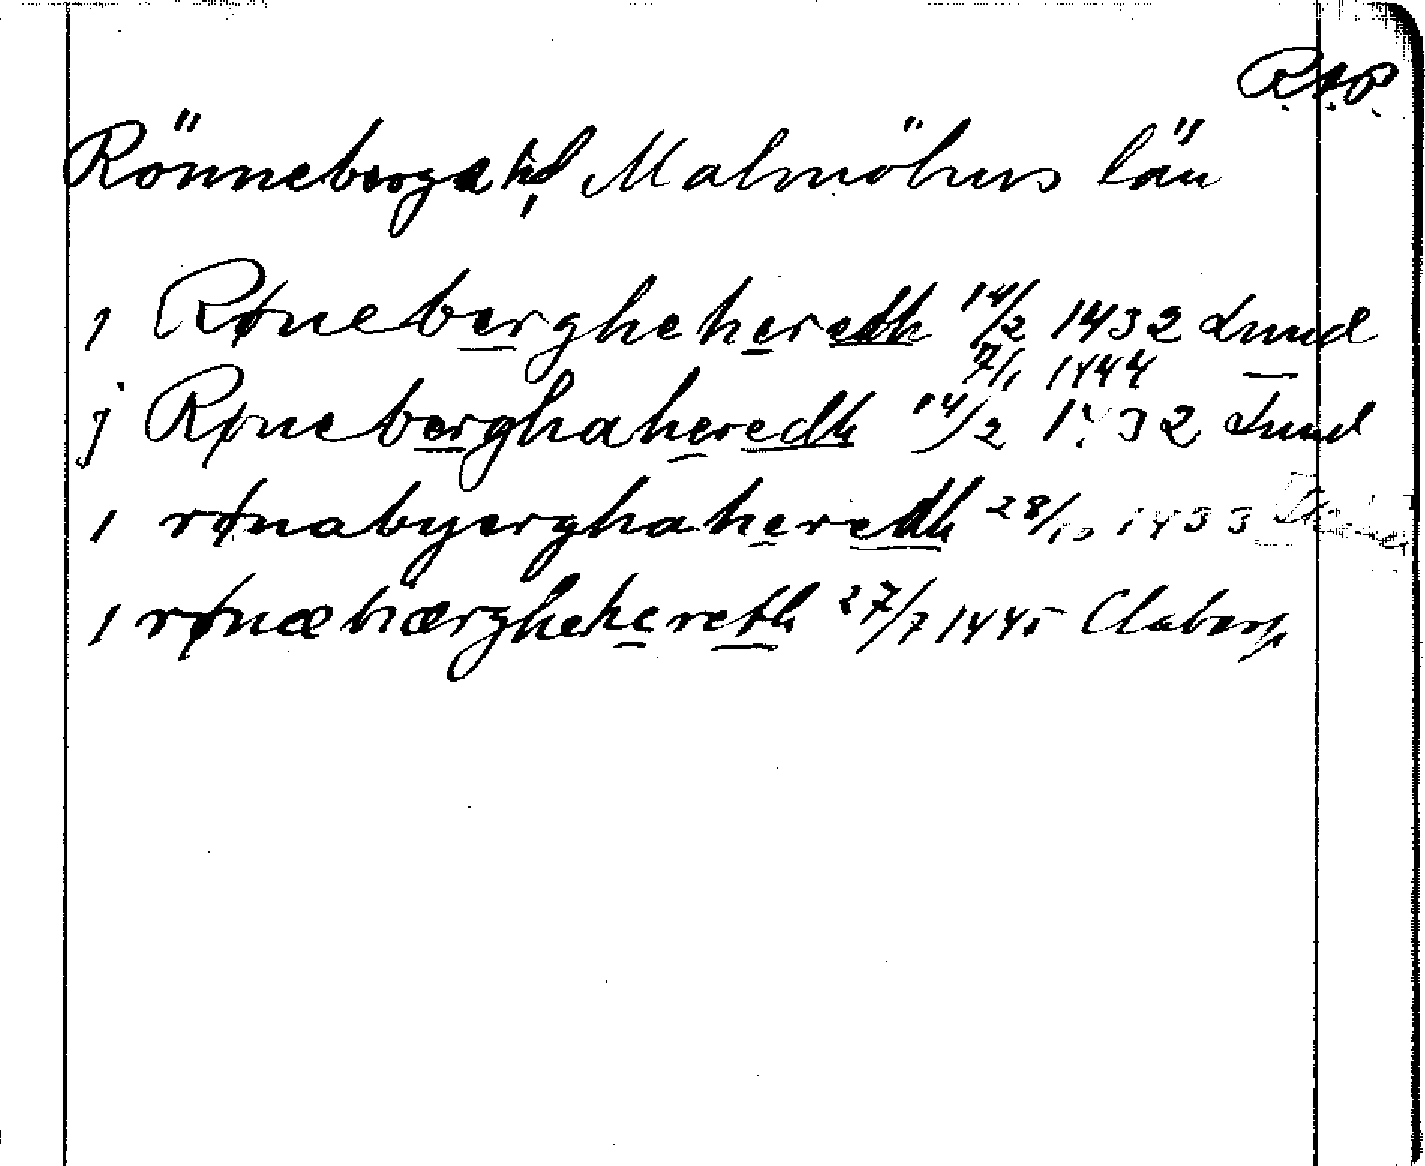 R.A.P.
Rönneberga hd, Malmöhus län
j Rønebergheheredh 14/2 1432 Lund
7/1 1444
j Røneberghaheredh 14/2 1432 Lund
j rønabyerghaheredh 28/10 1433
j rønæbiærghehereth 27/7 1445